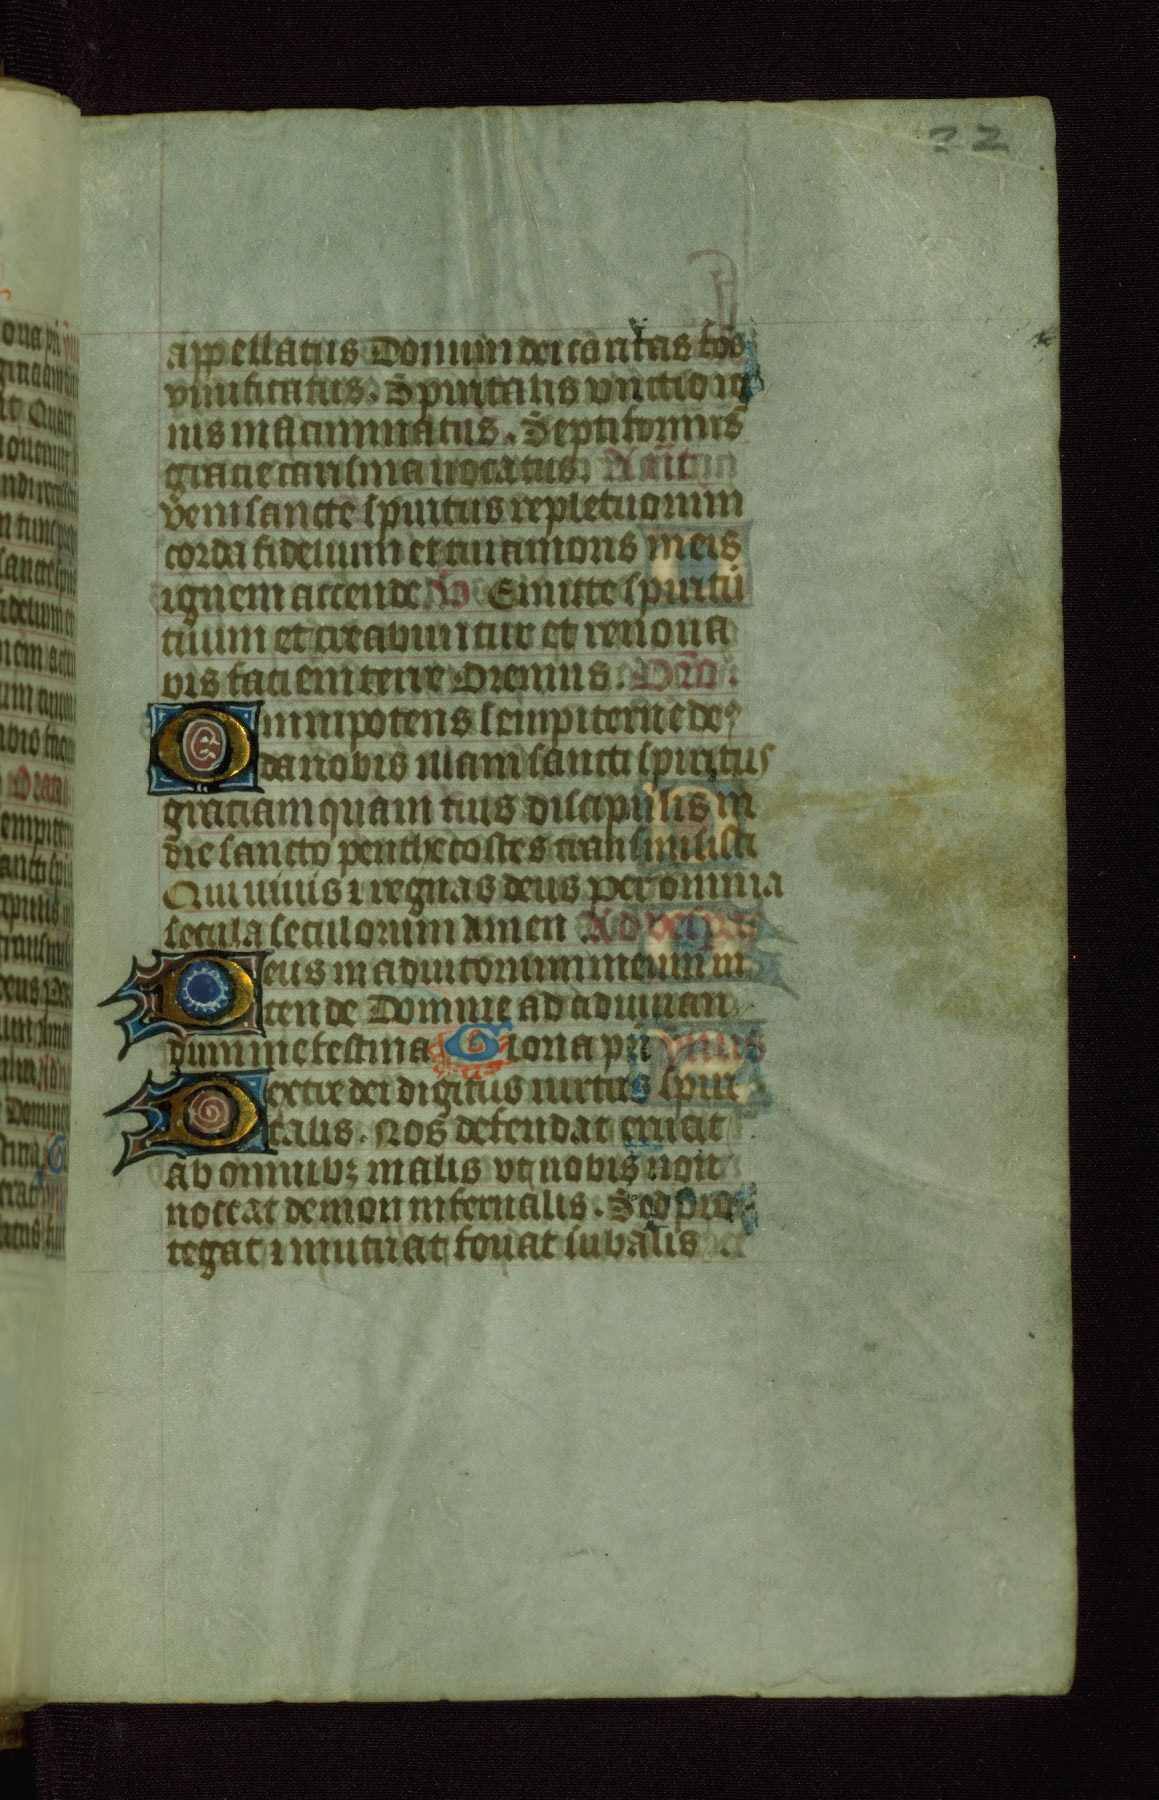 22
appellatus Donum dei caritas fōs
viuificatus. Spiritalis vnctio ig
nis inacuminatus. Septiformis
gracie carisma uocatus. Ant
veni sancte spiritus repletuorum
corda fidelium et tui amoris meis
ignem accende. V Emitte spiritū
tuum et creabuntur et renoua
bis faciem terre Oremus. Oro.
Omnipotens sempiterne deꝰ
da nobis illam sancti spiritus
graciam quam tuis discipulis in
die sancto penthecostes transmisisti
Qui uiuis ⁊ regnas deus per omnia
secula seculorum amen Ad vespas
Deus in adiutorium meum in
tende Domine ad adiuuan
dum me festina Gloria pri ymnus
Dextre dei digitus uirtus spiri
talis. Nos defendat eruat
ab omnibꝫ malis vt nobis non
noceat demon infernalis. Sed pro
tegat ⁊ nutriat foueat sub alis